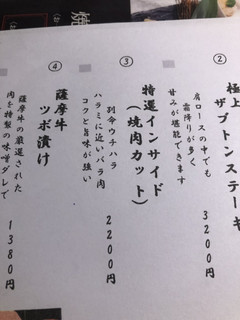 ②
極上
ザブトンステーキ
肩ロースの中でも
霜降りが多く
甘みが堪能できます
3200円
③
特選インサイド
(焼肉カット)
別命ウチハラ
ハラミに近いバラ肉
コクと旨味が強い
2200円
④
薩摩牛
ツボ漬け
薩摩牛の厳選された
肉を特製の味噌ダレで
1380円